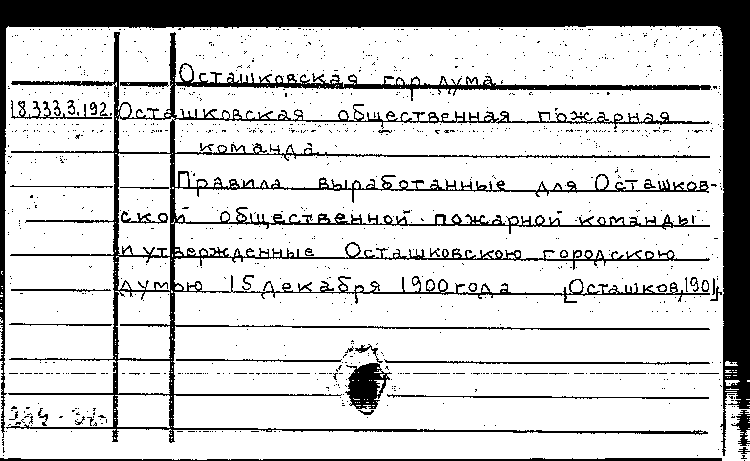 Осташковская гор. дума.
18.333.3.192. Осташковская общественная пожарная
команда.
Правила выработанные для Осташков-
ской общественной пожарной команды
и утвержденные Осташковскою городскою
думою 15 декабря 1900 года [Осташков, 190].